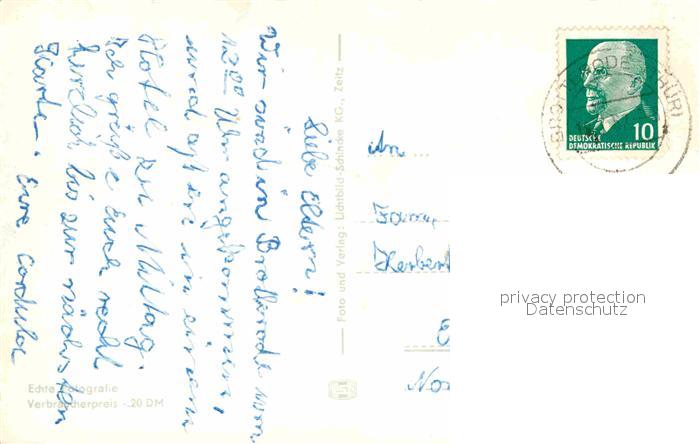 Liebe Eltern!
Wir sind in Brotterode um
12⁰⁰ Uhr angekommen,
und essen in einem
Hotel zu Mittag.
Ich grüße Euch recht
herzlich bis zur nächsten
Karte. Eure Cordula
Echte Fotografie
Verbraucherpreis -.20 DM
Foto und Verlag: Lichtbild-Schincke KG., Zeitz
An
Herbert
No
DEUTSCHE
DEMOKRATISCHE REPUBLIK
10
BROTTERODE (THÜR)
privacy protection
Datenschutz